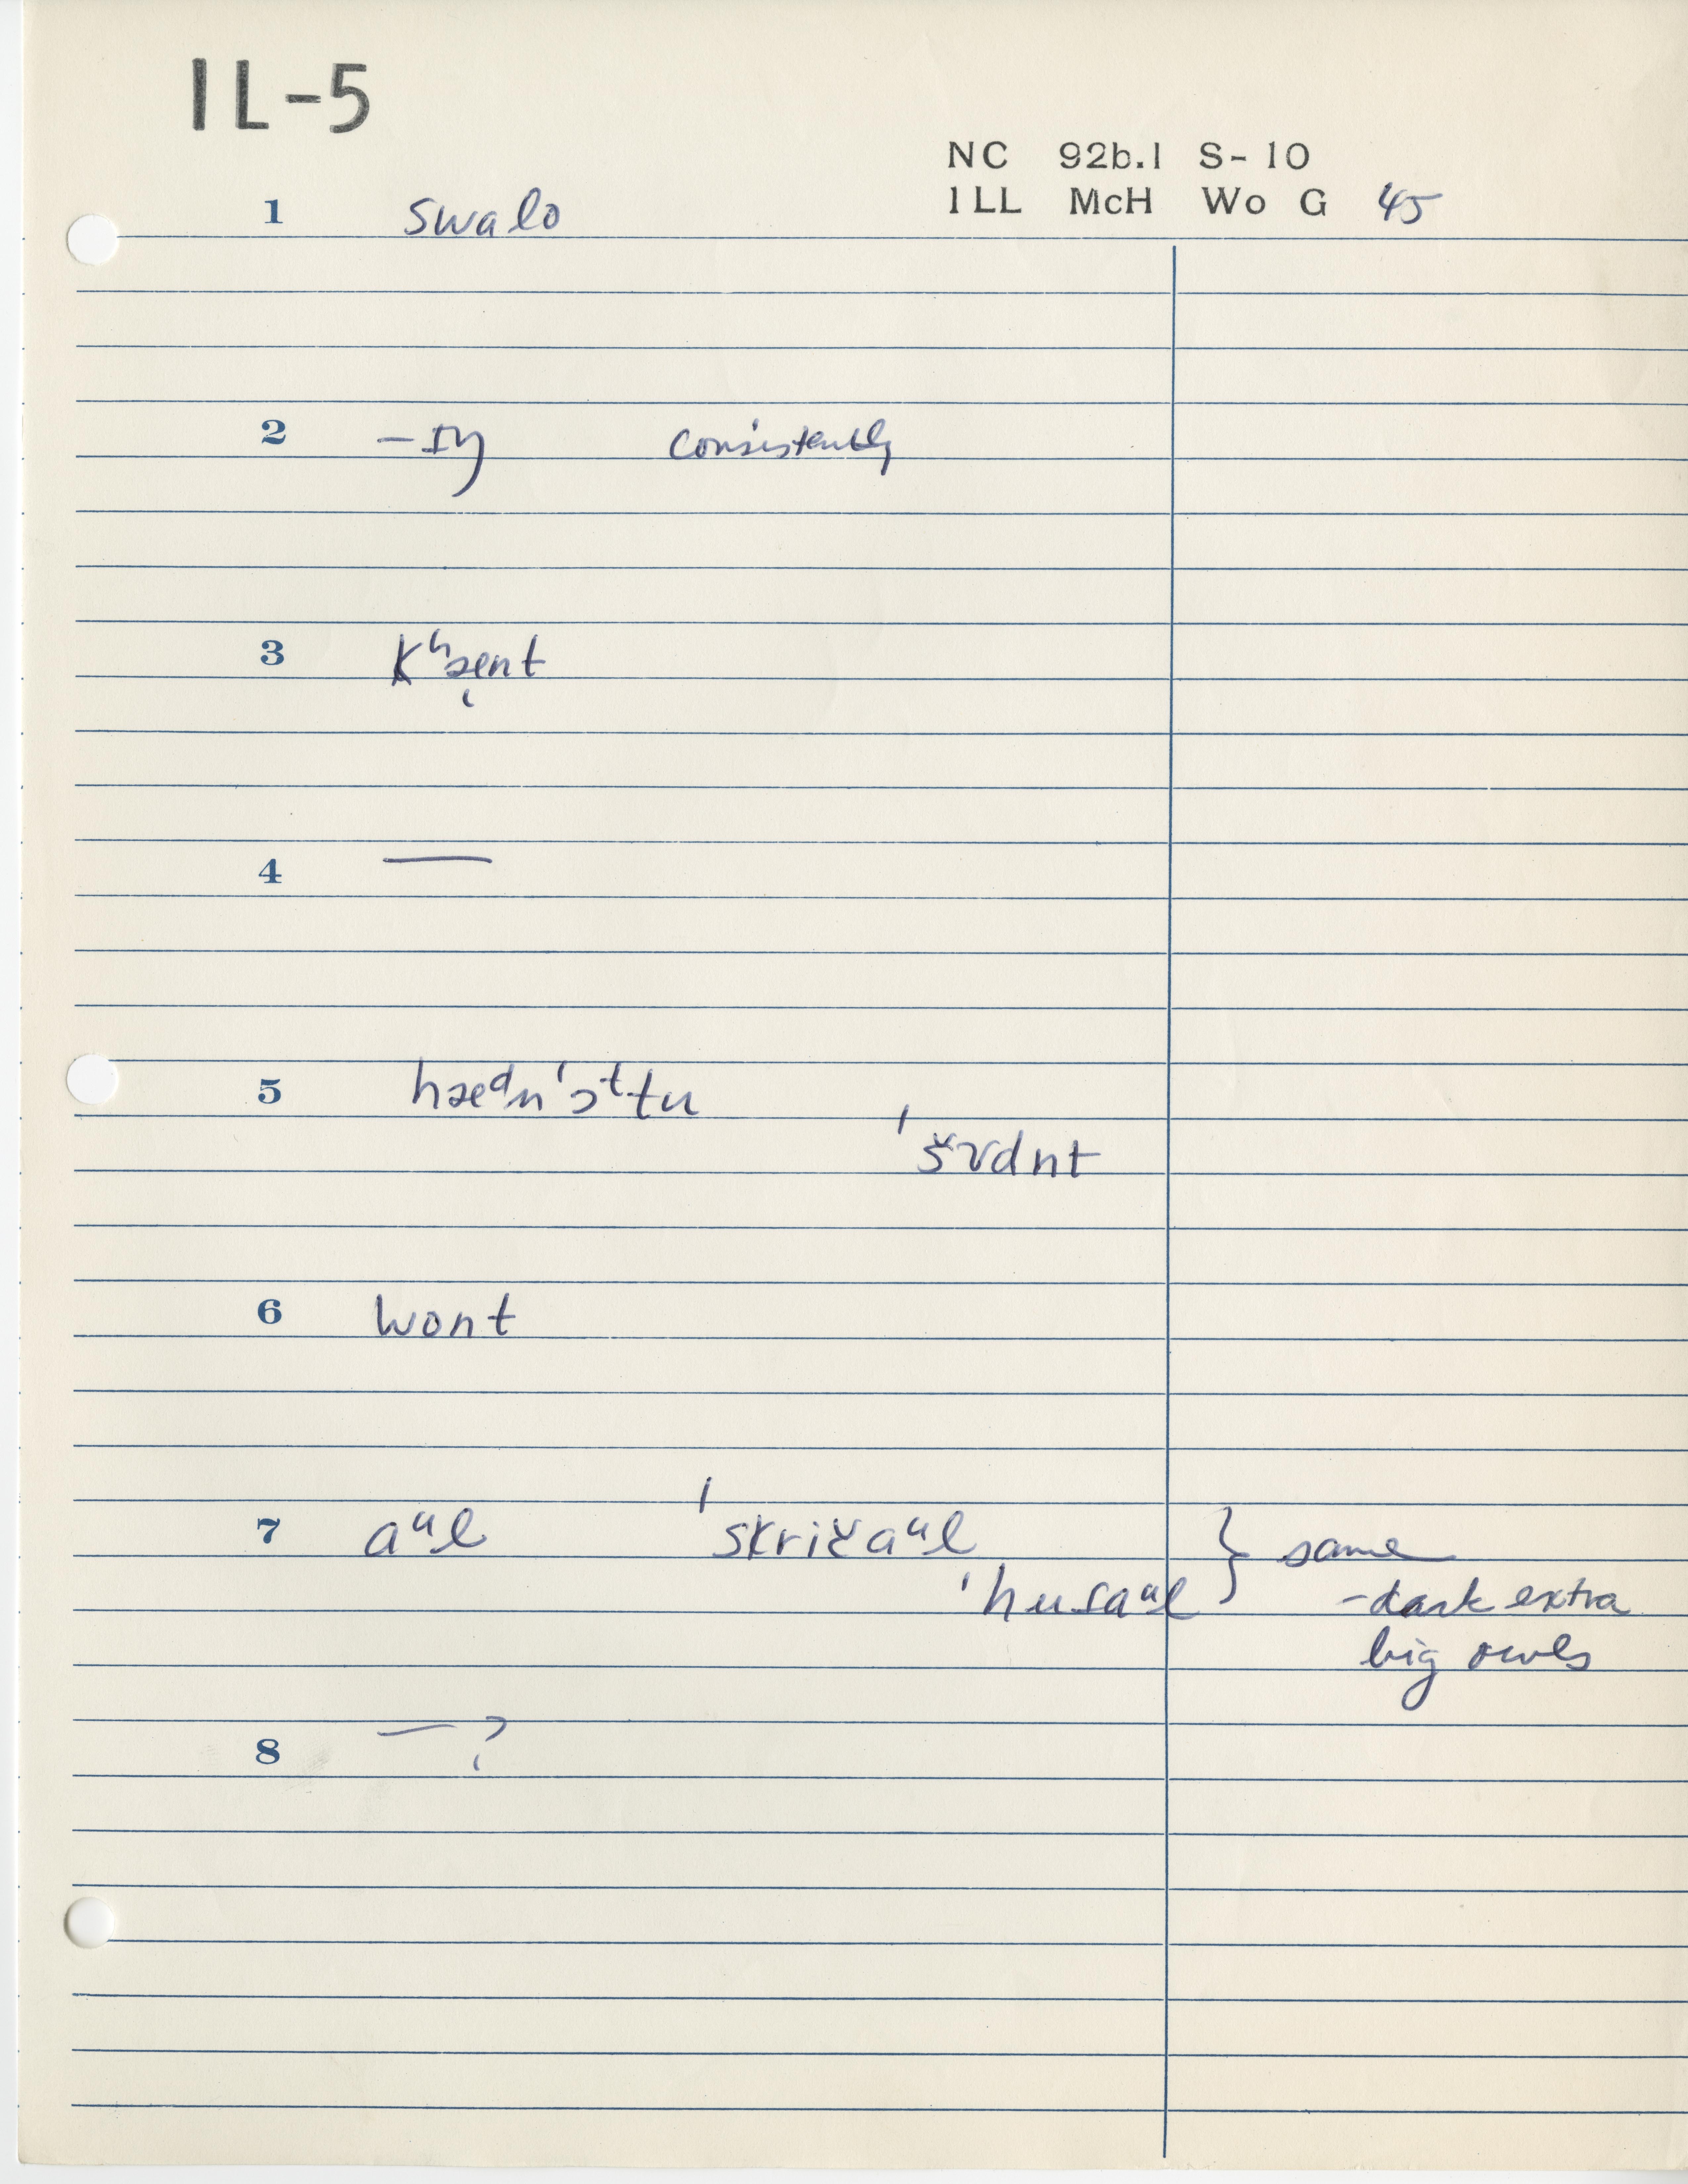 IL-5
NC 92b.1 S-10
ILL McH Wo G 45
1 swalo
2 –ɪŋ consistently
3 kʰæ̨nt
4 —
5 hæᵈn'ɔᵗtu
'šʊdnt
6 wont
7 aᵘl 'skričaᵘl } same
'husaᵘl -dark extra
big owls
8 — ?